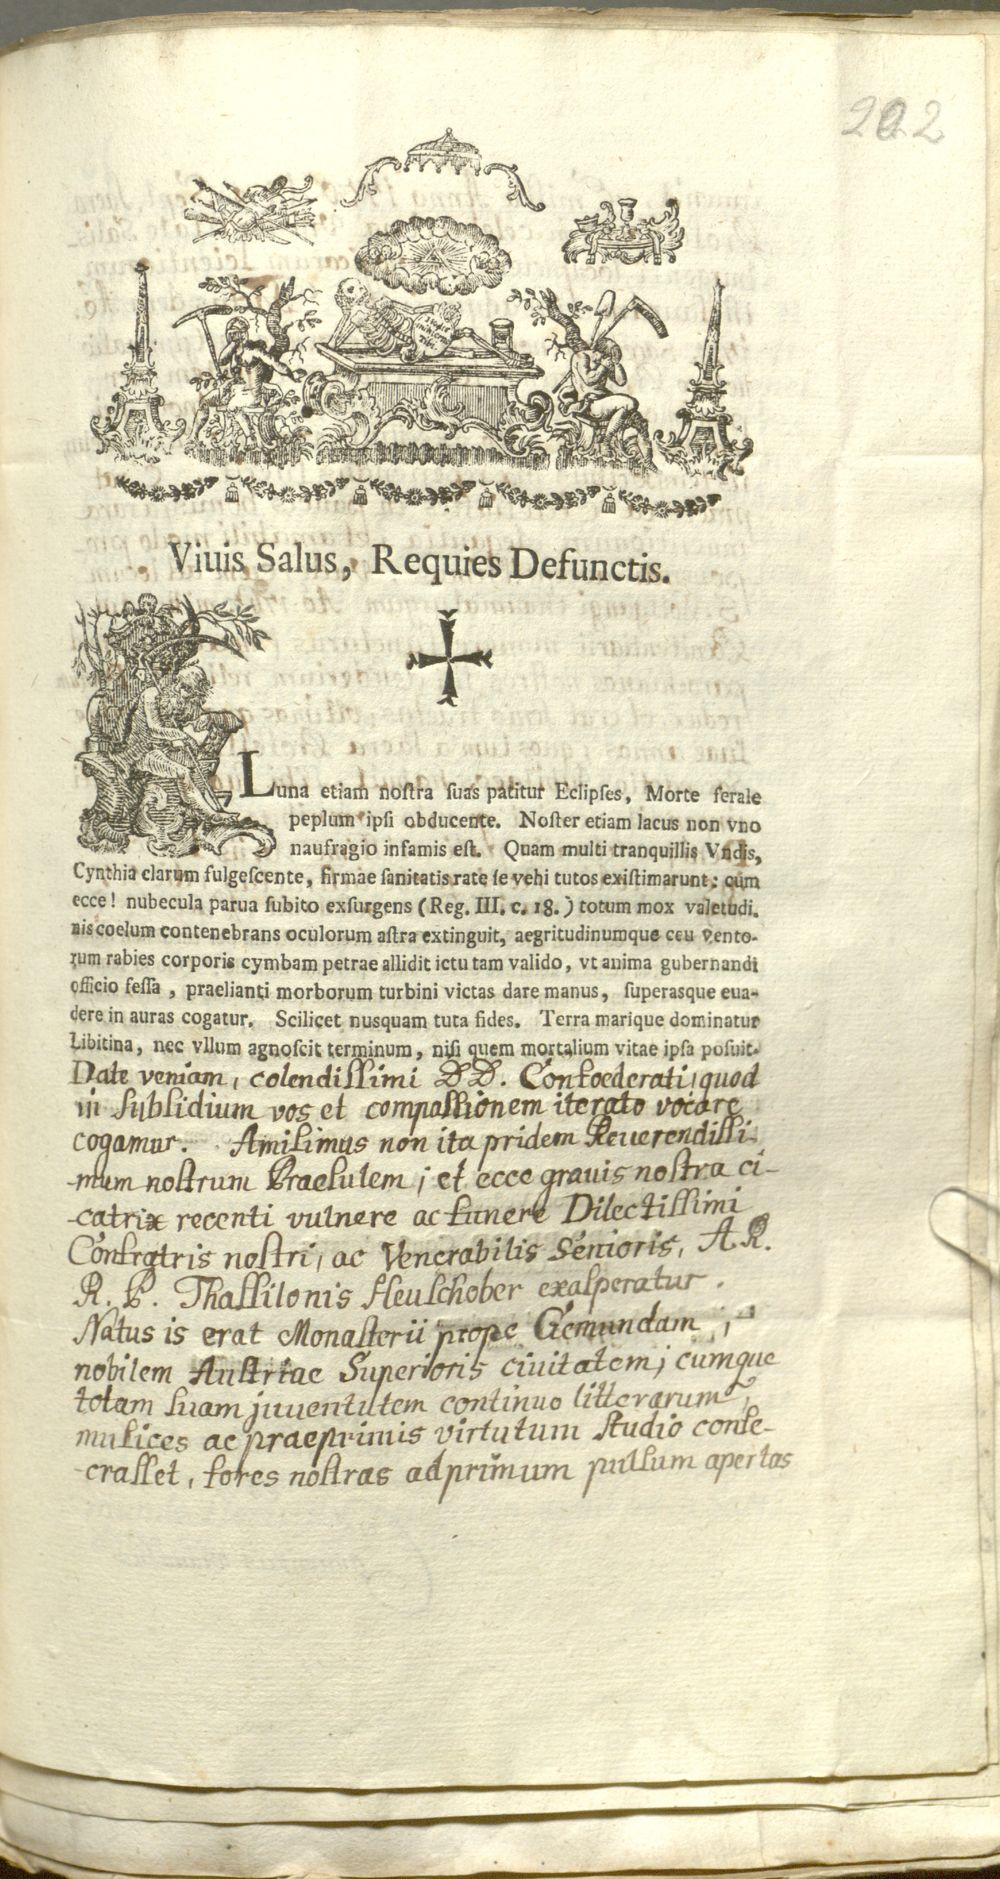 202
Viuis Salus, Requies Defunctis.
Luna etiam nostra suas patitur Eclipses, Morte ferale
peplum ipsi obducente. Noster etiam lacus non vno
naufragio infamis est. Quam multi tranquillis Vndis,
Cynthia clarum fulgescente, firmae sanitatis rate se vehi tutos existimarunt: cum
ecce! nubecula parua subito exsurgens (Reg. III. c. 18.) totum mox valetudi.
nis coelum contenebrans oculorum astra extinguit, aegritudinumque ceu vento-
rum rabies corporis cymbam petrae allidit ictu tam valido, vt anima gubernandi
officio fessa, praelianti morborum turbini victas dare manus, superasque eua-
dere in auras cogatur. Scilicet nusquam tuta fides. Terra marique dominatur
Libitina, nec vllum agnoscit terminum, nisi quem mortalium vitae ipsa posuit.
Date veniam, colendissimi DD. Confoederati, quod
in subsidium vos et compassionem iterato vocare
cogamur. Amisimus non ita pridem Reuerendissi-
-mum nostrum Praesulem; et ecce grauis nostra ci-
-catrix recenti vulnere ac funere Dilectissimi
Confratris nostri, ac Venerabilis Senioris, A.R.
R. P. Thassilonis Heuschober exasperatur.
Natus is erat Monasterii prope Gemundam,
nobilem Austriae Superioris ciuitatem; cumque
totam suam juuentutem continuo litterarum,
musices ac praeprimis virtutum studio conse-
-crasset, fores nostras ad primum pulsum apertas